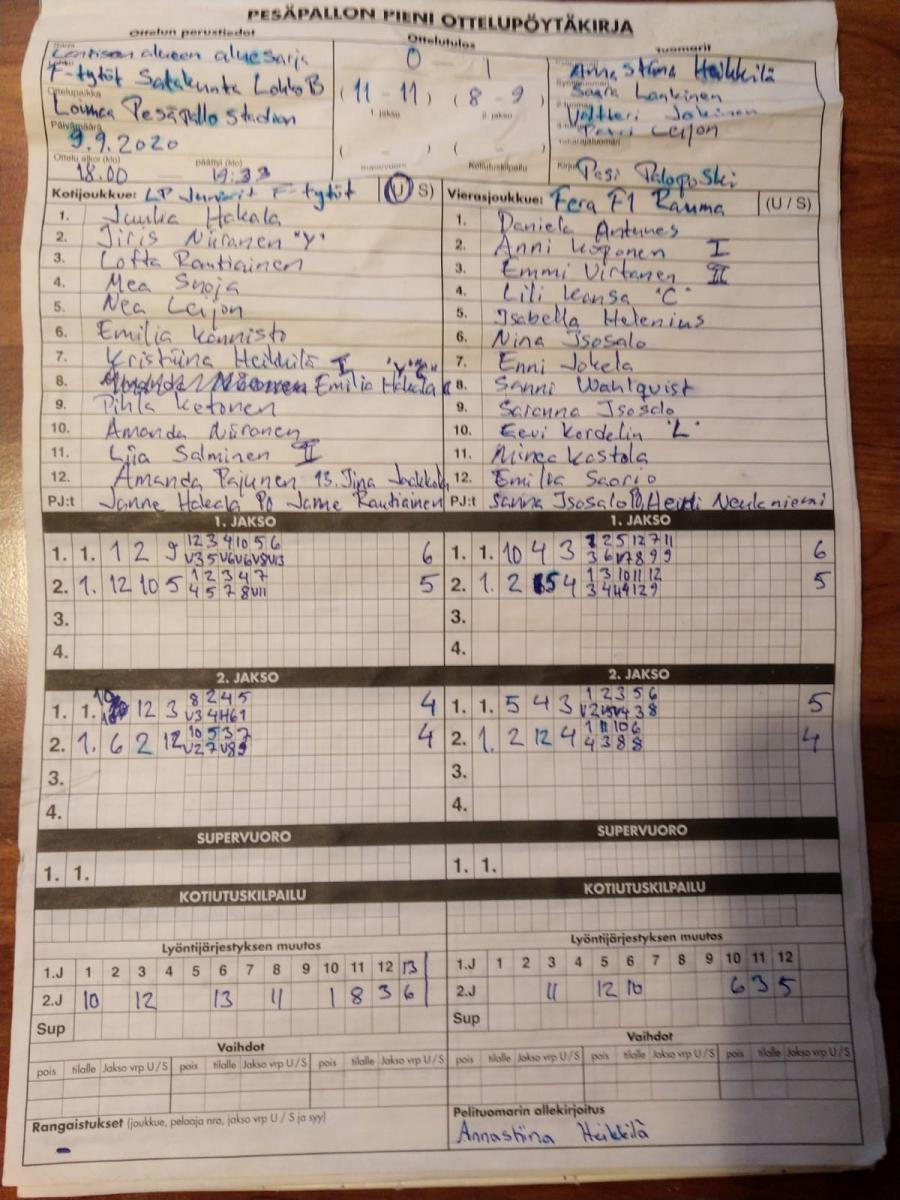 PESÄPALLON PIENI OTTELUPÖYTÄKIRJA
Ottelun perustiedot Ottelutulos Tuomarit
Läntisen alueen aluesarja 0 - 1 Anna Stiina Heikkilä
F-tytöt Satakunta Lohko B Saara Lankinen
Ottelupaikka (11 - 11) (8 - 9)
Loimaa Pesäpallo stadion 1. jakso 2. jakso Valtteri Jokinen
Päivämäärä Petri Leijon
9.9.2020 ( - ) ( - )
Ottelu alkoi (klo) päättyi (klo) Supervuoro Kotiutuskilpailu
18.00 19:33 Pesi Palopo ski
Kotijoukkue: LP Juniorit F-tytöt (U/S) Vierasjoukkue: Fera F1 Rauma (U / S)
1. Juulia Hakala 1. Daniela Antunes
2. Jiris Niiranen "Y" 2. Anni Koponen I
3. Lotta Rautiainen 3. Emmi Virtanen II
4. Mea Suoja 4. Lili Kansa "C"
5. Nea Leijon 5. Isabella Helenius
6. Emilia Kannisto 6. Nina Isosalo
7. Kristiina Heikkilä I 7. Enni Jokela
8. Emilia Hakala 8. Sanni Wahlquist
9. Pihla Ketonen 9. Saranna Isosalo
10. Amanda Niiranen 10. Eevi Kordelin "L"
11. Liia Salminen II 11. Minea Kastola
12. Amanda Pajunen 13. Jina Jaakkola 12. Emilia Saario
PJ:t Janne Hakala PJ Janne Rautiainen PJ:t Sanna Isosalo PJ Heidi Neulaniemi
1. JAKSO 1. JAKSO
1. 1. 12 9 12 3 4 10 5 6 6 1. 1. 10 4 3 1 2 5 12 7 11 6
V3 5 V6 V6 V8 V13 3 6 V7 8 9 9
2. 1. 12 10 5 1 2 3 4 7 5 2. 1. 2 5 4 1 3 10 11 12 5
4 5 7 8 V11 3 4 H9 12 9
3. 3.
4. 4.
2. JAKSO 2. JAKSO
1. 1. 10 12 3 8 2 4 5 4 1. 1. 5 4 3 1 2 3 5 6 5
V3 4 H6 1 V2 V5 V4 3 8
2. 1. 6 2 12 10 5 3 7 4 2. 1. 2 12 4 1 11 10 6 4
V2 7 V8 9 4 3 8 8
3. 3.
4. 4.
SUPERVUORO SUPERVUORO
1. 1. 1. 1.
KOTIUTUSKILPAILU KOTIUTUSKILPAILU
Lyöntijärjestyksen muutos Lyöntijärjestyksen muutos
1.J 1 2 3 4 5 6 7 8 9 10 11 12 13 1.J 1 2 3 4 5 6 7 8 9 10 11 12
2.J 10 12 13 11 1 8 3 6 2.J 11 12 10 6 3 5
Sup Sup
Vaihdot Vaihdot
pois tilalle Jakso vrp U / S pois tilalle Jakso vrp U / S pois tilalle Jakso vrp U / S pois tilalle Jakso vrp U / S pois tilalle Jakso vrp U / S pois tilalle Jakso vrp U / S
Rangaistukset (joukkue, pelaaja nro, jakso vrp U / S ja syy) Pelituomarin allekirjoitus
- Annastiina Heikkilä